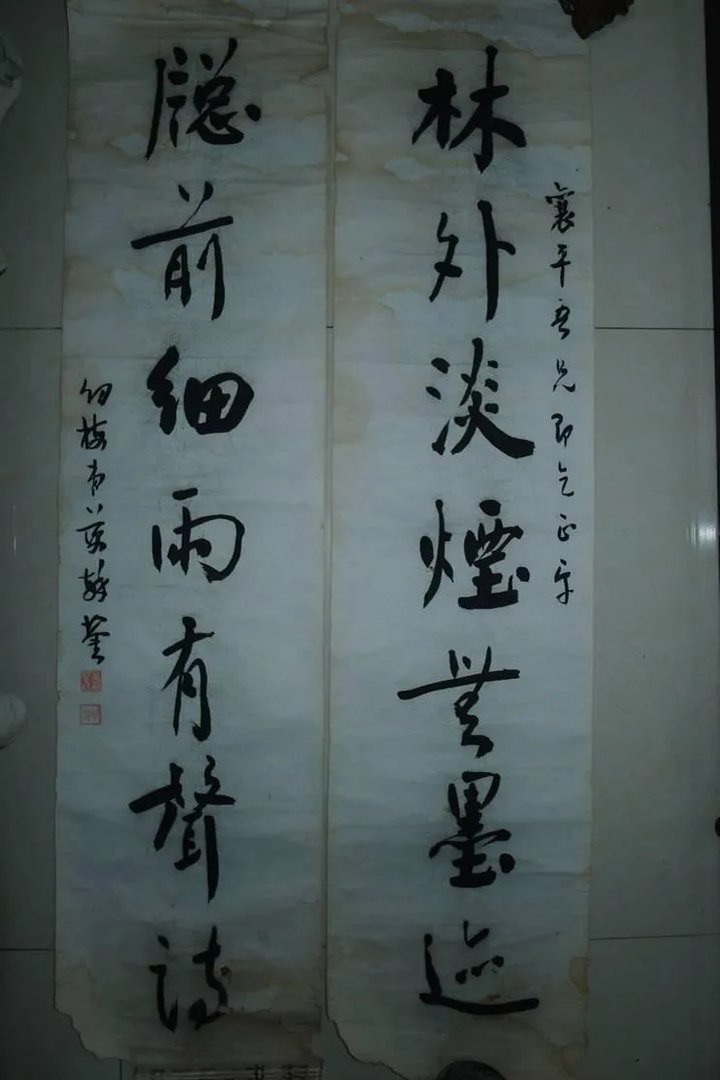 襄平吾兄即乞正字
林外淡煙無墨迹
牕前細雨有聲詩
伯梅弟